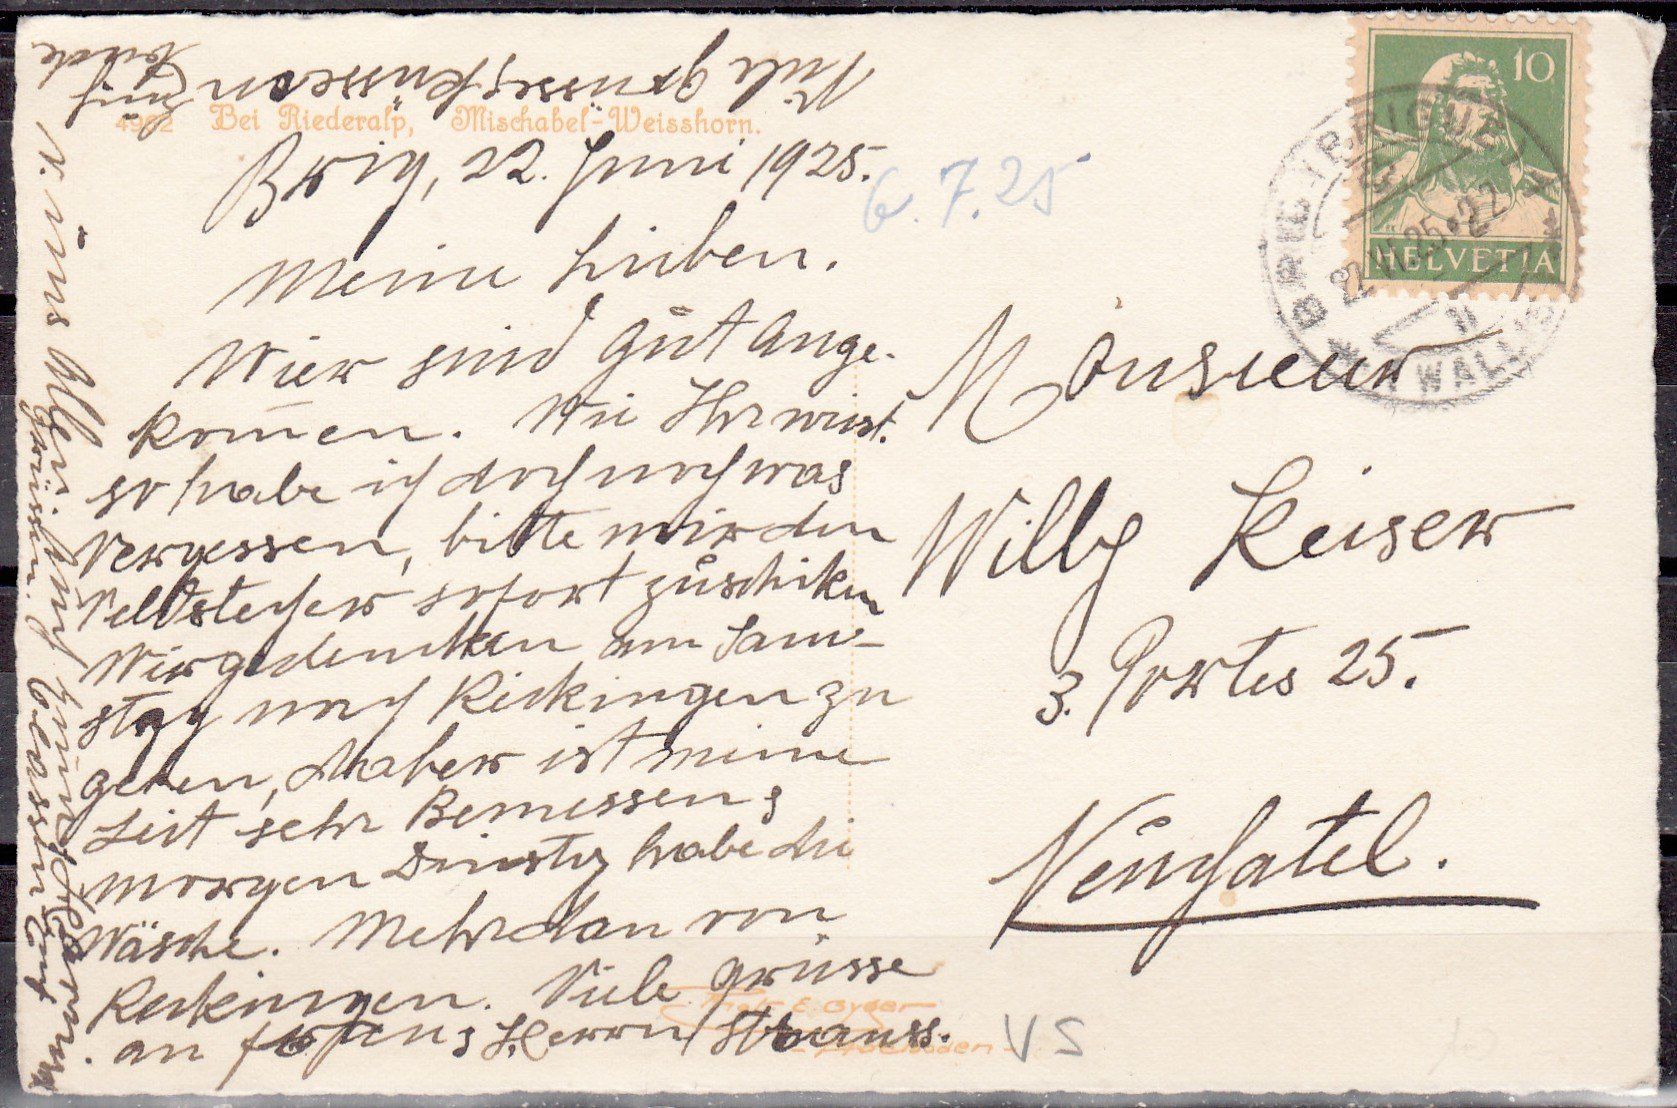 4962 Bei Riederalp, Mischabel-Weisshorn.
Brig, 22. Juni 1925.
6.7.25
Meine Lieben.
Wier sind gut ange-
kom̅en. Wie Ihr wist.
so habe ich doch noch was
Vergessen, bitte mir den
Veldstecher sofort zuschiken
Wir gedenken am Sam-
stag nach Reckingen zu
gehen, daher ist meine
Zeit sehr Bemessen,
morgen Dinstag habe die
Wäsche. Mehr dan von
Reckingen. Viele grüsse
an Herrn Strauss.
Viele grüsse, küssen
v. uns Allen
grüssen.
10
HELVETIA
BRIG (BRIGUE)
22.VI.25-22
(WALLIS)
Monsieur
Willy Keiser
3. Portes 25.
Neuchatel.
Phot. E. Gyger
Adelboden
VS